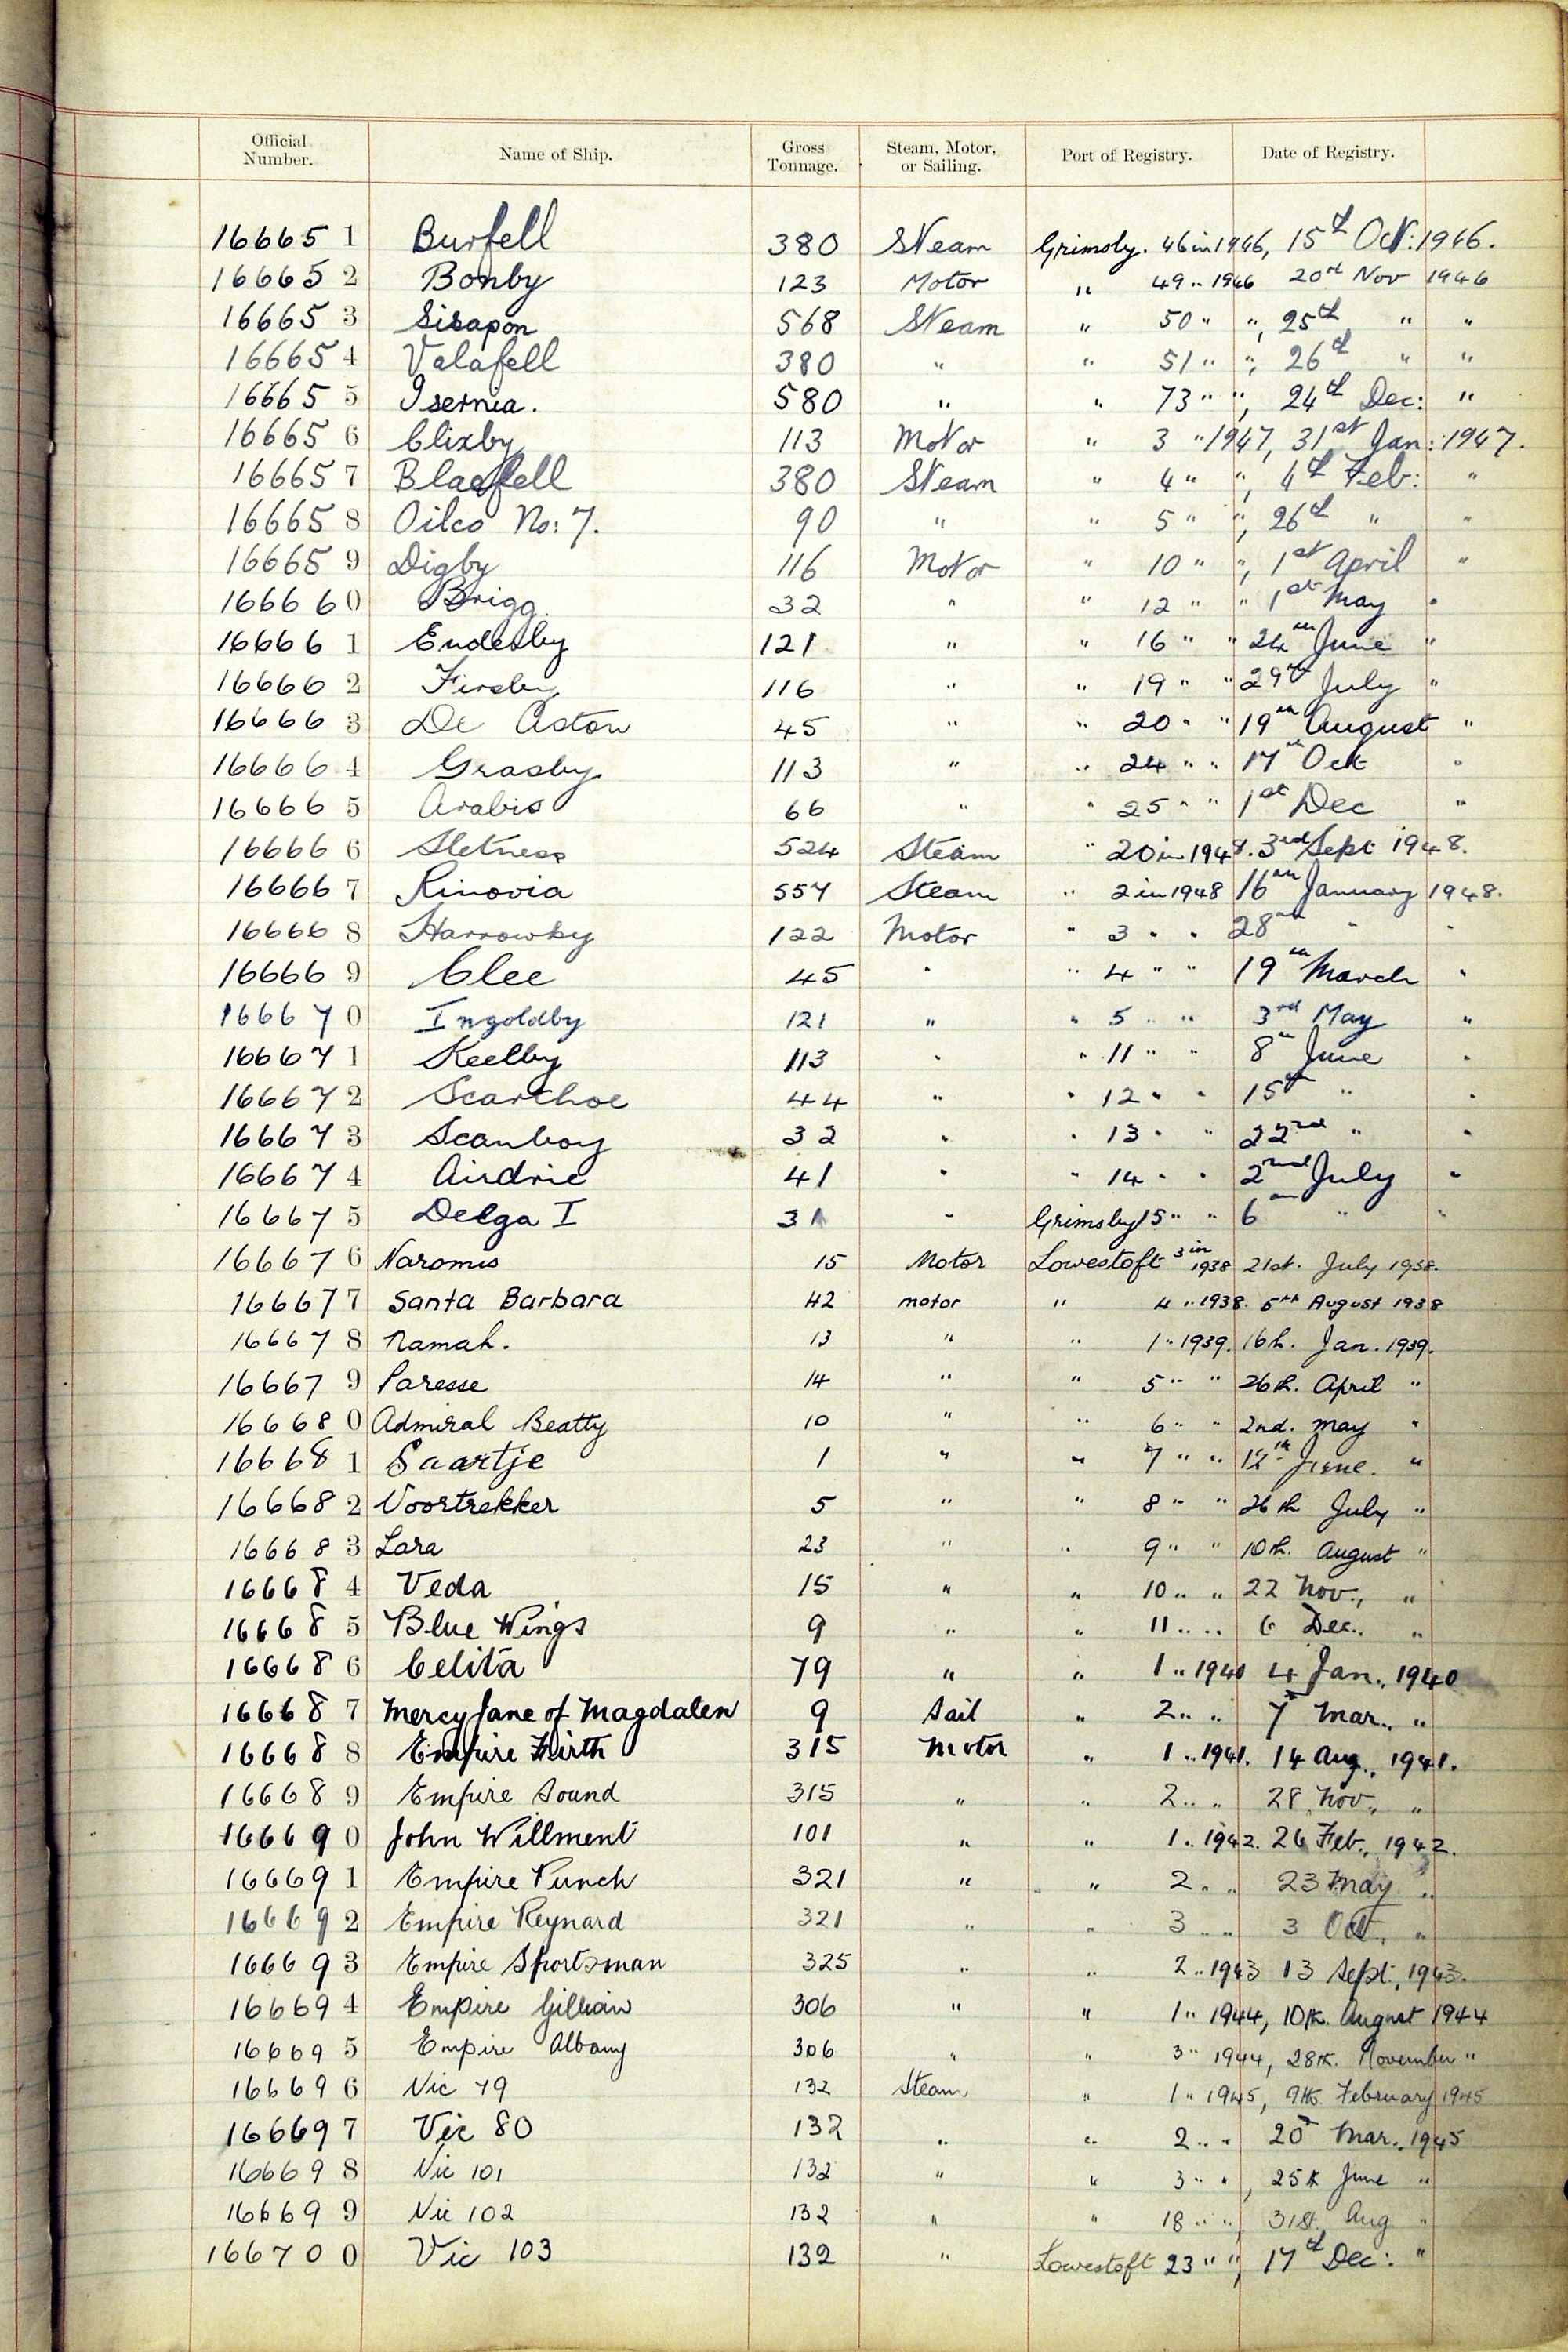 Official Number. Name of Ship. Gross Tonnage. Steam, Motor, or Sailing. Port of Registry. Date of Registry.
166651 Burfell 380 Steam Grimsby. 46 in 1946, 15th Oct: 1946.
166652 Bonby 123 Motor " 49 " 1946 20th Nov 1946
166653 Sisapon 568 Steam " 50 " ", 25th " "
166654 Valafell 380 " " 51 " ", 26th " "
166655 Isernia. 580 " " 73 " ", 24th Dec: "
166656 Clixby 113 Motor " 3 " 1947, 31st Jan: 1947.
166657 Blaefell 380 Steam " 4 " ", 4th Feb: "
166658 Oilco No: 7. 90 " " 5 " ", 26th " "
166659 Digby 116 Motor " 10 " ", 1st April "
166660 Brigg. 32 " " 12 " " 1st May "
166661 Enderby 121 " " 16 " " 24th June "
166662 Firsby 116 " " 19 " " 29th July "
166663 De Aston 45 " " 20 " " 19th August "
166664 Grasby 113 " " 24 " " 17th Oct "
166665 Arabis 66 " " 25 " " 1st Dec "
166666 Sletness 524 Steam " 20 in 1948. 3rd Sept 1948.
166667 Rinovia 557 Steam " 2 in 1948 16th January 1948.
166668 Harrowby 122 Motor " 3 " " 28th " "
166669 Clee 45 " " 4 " " 19th March "
166670 Ingoldby 121 " " 5 " " 3rd May "
166671 Keelby 113 " " 11 " " 8th June "
166672 Scarthoe 44 " " 12 " " 15th " "
166673 Scanboy 32 " " 13 " " 22nd " "
166674 Airdrie 41 " " 14 " " 2nd July "
166675 Delga I 31 " Grimsby 15 " " 6th " "
166676 Naromis 15 Motor Lowestoft 3 in 1938 21st. July 1938.
166677 Santa Barbara 42 motor " 4 " 1938. 5th August 1938
166678 Namah. 13 " " 1 " 1939. 16th. Jan. 1939.
166679 Paresse 14 " " 5 " " 26th. April "
166680 Admiral Beatty 10 " " 6 " " 2nd. May "
166681 Saartje 1 " " 7 " " 12th June. "
166682 Voortrekker 5 " " 8 " " 26th July "
166683 Lara 23 " " 9 " " 10th. August "
166684 Veda 15 " " 10 " " 22 Nov., "
166685 Blue Wings 9 " " 11 " " 6 Dec., "
166686 Celita 79 " " 1 " 1940 4 Jan., 1940
166687 Mercy Jane of Magdalen 9 Sail " 2 " " 7 Mar., "
166688 Empire Firth 315 Motor " 1 " 1941. 14 Aug., 1941.
166689 Empire Sound 315 " " 2 " " 28 Nov., "
166690 John Willment 101 " " 1 " 1942. 26 Feb., 1942.
166691 Empire Punch 321 " " 2 " " 23 May "
166692 Empire Reynard 321 " " 3 " " 3 Oct., "
166693 Empire Sportsman 325 " " 2 " 1943 13 Sept., 1943.
166694 Empire Gillian 306 " " 1 " 1944, 10th. August 1944
166695 Empire Albany 306 " " 3 " 1944, 28th. November "
166696 Vic 79 132 Steam " 1 " 1945, 9th. February 1945
166697 Vic 80 132 " " 2 " " 20 Mar., 1945
166698 Vic 101 132 " " 3 " ", 25th June "
166699 Vic 102 132 " " 18 " ", 31st. Aug "
166700 Vic 103 132 " Lowestoft 23 " ", 17th Dec: "